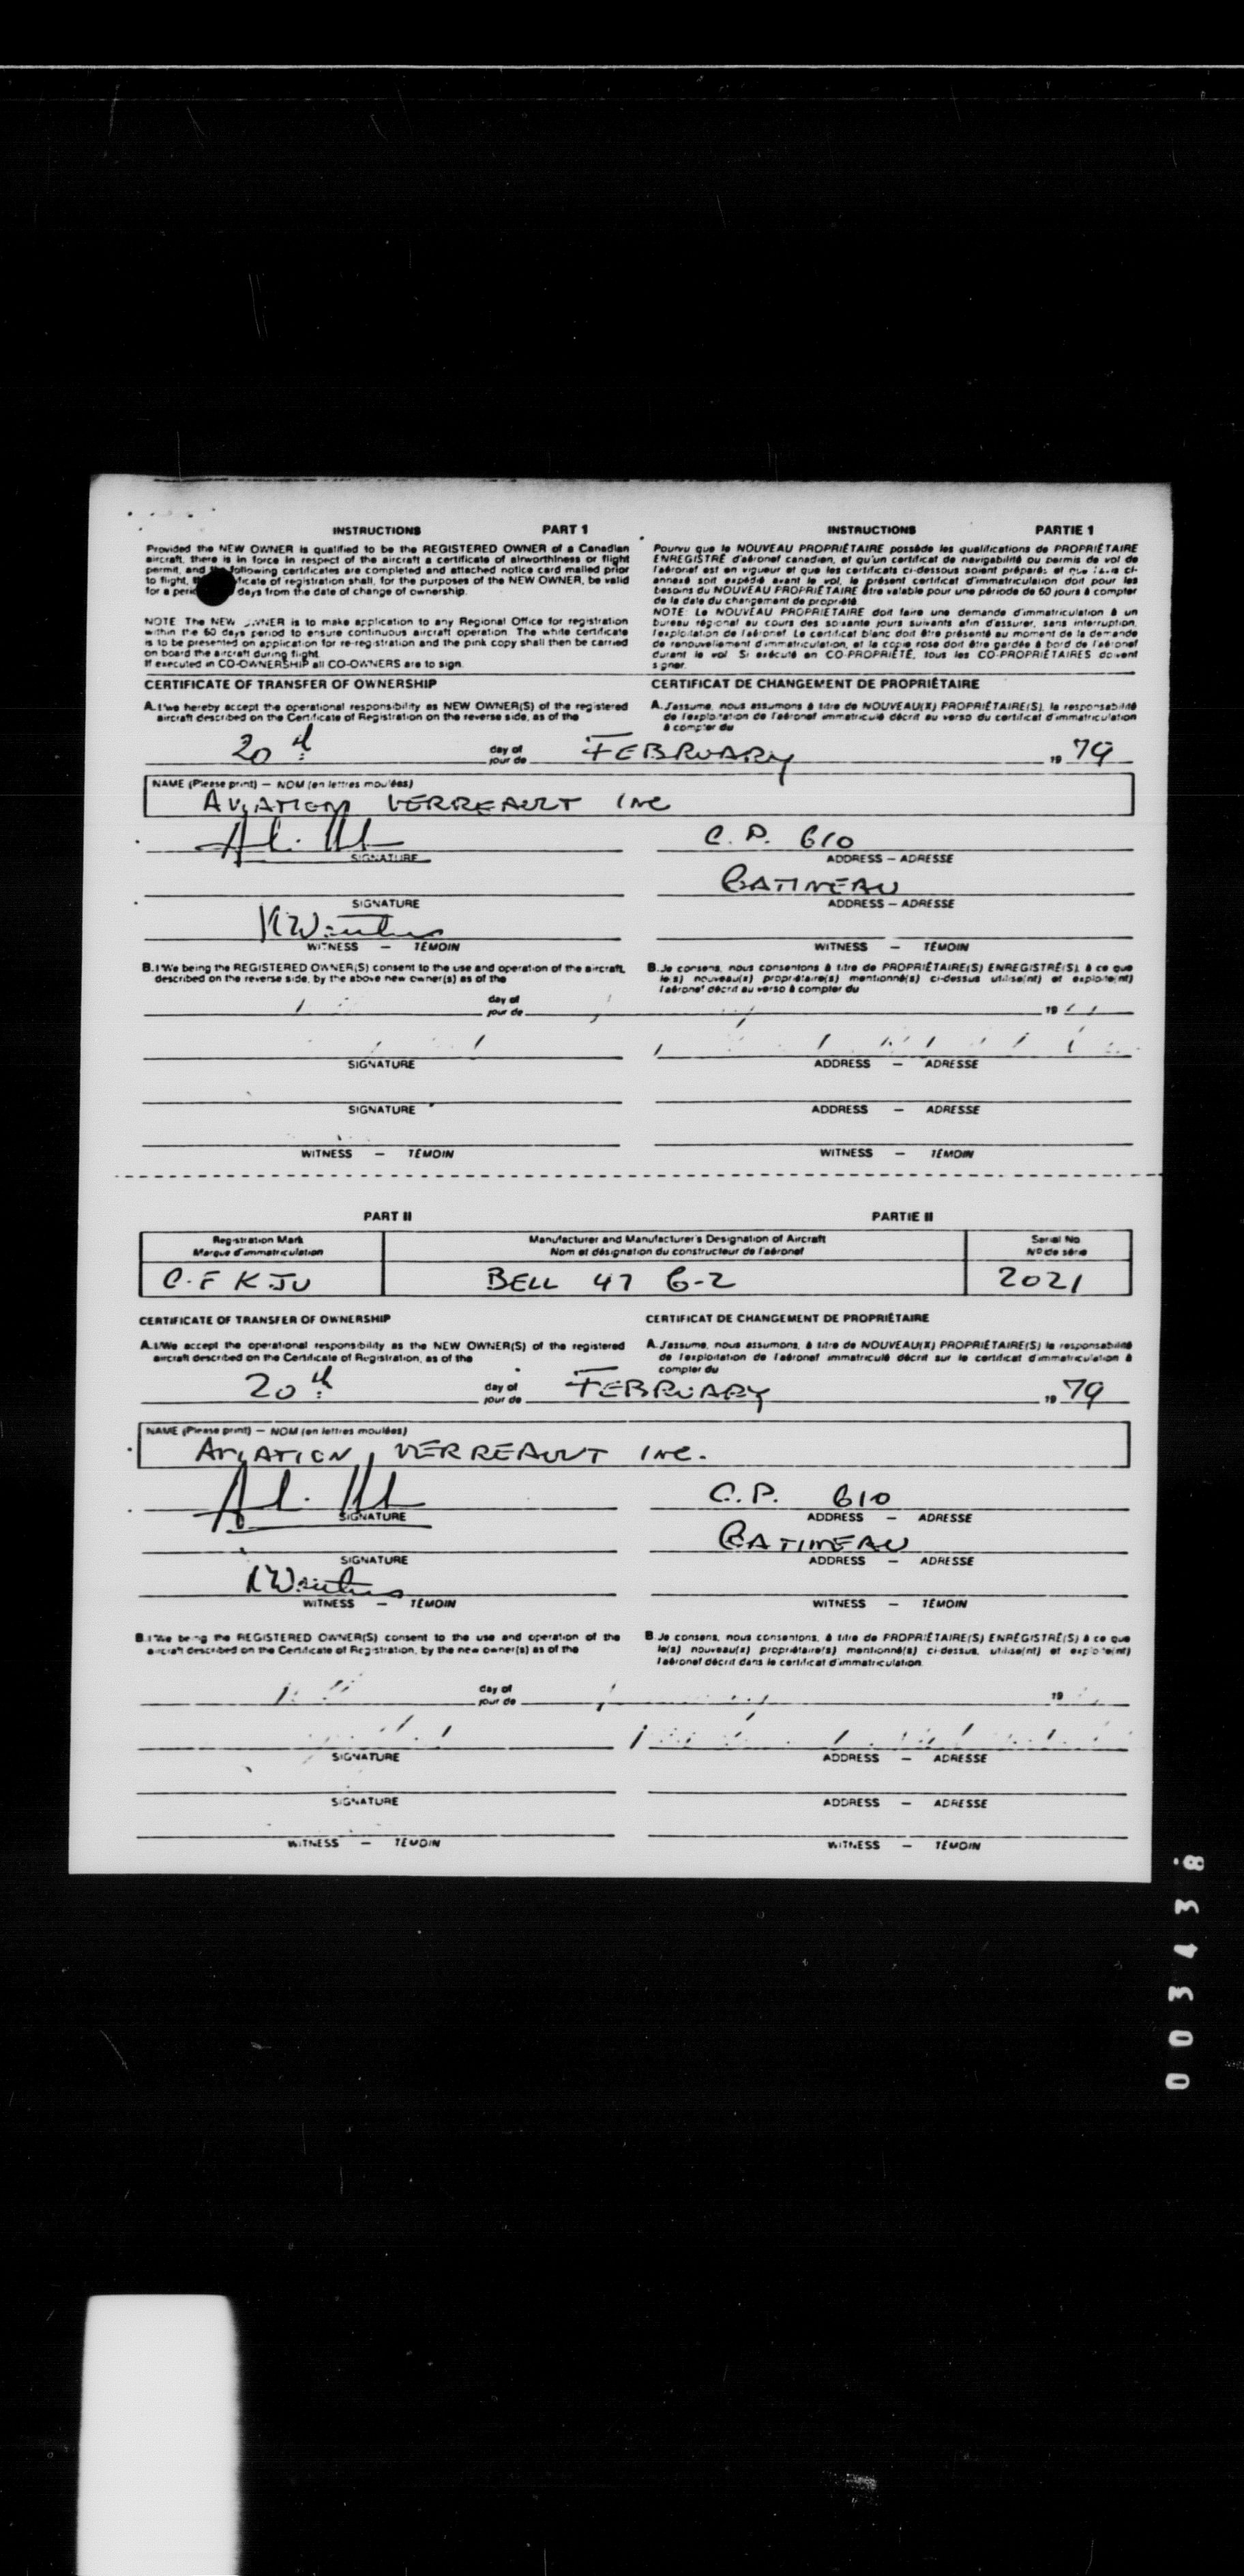 INSTRUCTIONS PART 1
Provided the NEW OWNER is qualified to be the REGISTERED OWNER of a Canadian
aircraft, there is in force in respect of the aircraft a certificate of airworthiness or flight
permit, and the following certificates are completed and attached notice card mailed prior
to flight, ficate of registration shall, for the purposes of the NEW OWNER, be valid
for a peri days from the date of change of ownership.
NOTE The NEW OWNER is to make application to any Regional Office for registration
within the 60 days period to ensure continuous aircraft operation. The white certificate
is to be presented on application for re-registration and the pink copy shall then be carried
on board the aircraft during flight.
If executed in CO-OWNERSHIP all CO-OWNERS are to sign.
INSTRUCTIONS PARTIE 1
Pourvu que le NOUVEAU PROPRIÉTAIRE possède les qualifications de PROPRIÉTAIRE
ENREGISTRÉ d'aéronef canadien, et qu'un certificat de navigabilité ou permis de vol de
l'aéronef est en vigueur et que les certificats ci-dessous soient préparés et que l'avis ci-
annexé soit expédié avant le vol, le présent certificat d'immatriculation doit pour les
besoins du NOUVEAU PROPRIÉTAIRE être valable pour une période de 60 jours à compter
de la date du changement de propriété.
NOTE: Le NOUVEAU PROPRIÉTAIRE doit faire une demande d'immatriculation à un
bureau régional au cours des soixante jours suivants afin d'assurer, sans interruption,
l'exploitation de l'aéronef. Le certificat blanc doit être présenté au moment de la demande
de renouvellement d'immatriculation, et la copie rose doit être gardée à bord de l'aéronef
durant le vol. Si exécuté en CO-PROPRIÉTÉ, tous les CO-PROPRIÉTAIRES doivent
signer.
CERTIFICATE OF TRANSFER OF OWNERSHIP
A. I/we hereby accept the operational responsibility as NEW OWNER(S) of the registered
aircraft described on the Certificate of Registration on the reverse side, as of the
CERTIFICAT DE CHANGEMENT DE PROPRIÉTAIRE
A. J'assume, nous assumons à titre de NOUVEAU(X) PROPRIÉTAIRE(S), la responsabilité
de l'exploitation de l'aéronef immatriculé décrit au verso du certificat d'immatriculation
à compter du
20th day of FEBRUARY 19 79
jour de
NAME (Please print) — NOM (en lettres moulées)
AVIATION VERREAULT INC
C.P. 610
SIGNATURE ADDRESS — ADRESSE
GATINEAU
SIGNATURE ADDRESS — ADRESSE
WITNESS — TÉMOIN WITNESS — TÉMOIN
B. I/We being the REGISTERED OWNER(S) consent to the use and operation of the aircraft,
described on the reverse side, by the above new owner(s) as of the
B. Je consens, nous consentons à titre de PROPRIÉTAIRE(S) ENREGISTRÉ(S), à ce que
le(s) nouveau(x) propriétaire(s) mentionné(s) ci-dessus utilise(nt) et exploite(nt)
l'aéronef décrit au verso à compter du
day of 19
jour de
SIGNATURE ADDRESS — ADRESSE
SIGNATURE ADDRESS — ADRESSE
WITNESS — TÉMOIN WITNESS — TÉMOIN
PART II PARTIE II
Registration Mark
Marque d'immatriculation
Manufacturer and Manufacturer's Designation of Aircraft
Nom et désignation du constructeur de l'aéronef
Serial No
Nº de série
C.F KJU BELL 47 G-2 2021
CERTIFICATE OF TRANSFER OF OWNERSHIP
A. I/We accept the operational responsibility as the NEW OWNER(S) of the registered
aircraft described on the Certificate of Registration, as of the
CERTIFICAT DE CHANGEMENT DE PROPRIÉTAIRE
A. J'assume, nous assumons, à titre de NOUVEAU(X) PROPRIÉTAIRE(S) la responsabilité
de l'exploitation de l'aéronef immatriculé décrit sur le certificat d'immatriculation à
compter du
20th day of FEBRUARY 19 79
jour de
NAME (Please print) — NOM (en lettres moulées)
AVIATION VERREAULT INC.
C.P. 610
SIGNATURE ADDRESS — ADRESSE
GATINEAU
SIGNATURE ADDRESS — ADRESSE
WITNESS — TÉMOIN WITNESS — TÉMOIN
B. I/We being the REGISTERED OWNER(S) consent to the use and operation of the
aircraft described on the Certificate of Registration, by the new owner(s) as of the
B. Je consens, nous consentons, à titre de PROPRIÉTAIRE(S) ENREGISTRÉ(S) à ce que
le(s) nouveau(x) propriétaire(s) mentionné(s) ci-dessus, utilise(nt) et exploite(nt)
l'aéronef décrit dans le certificat d'immatriculation.
day of 19
jour de
SIGNATURE ADDRESS — ADRESSE
SIGNATURE ADDRESS — ADRESSE
WITNESS — TÉMOIN WITNESS — TÉMOIN
003438